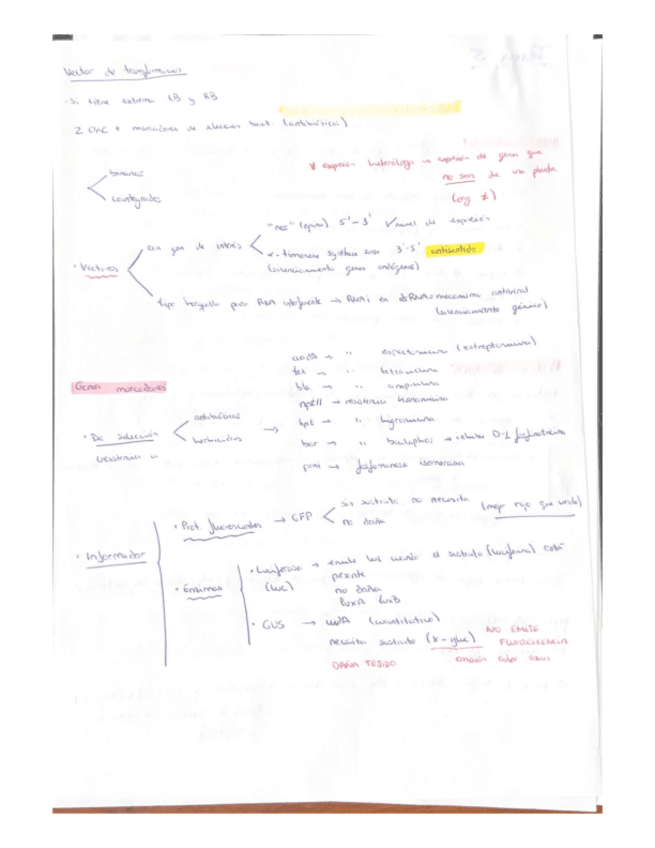 Vector de transformación
- Si tiene extremo LB y RB
2 ORC + marcadores de selección bact. (antibióticos)
* expresión heteróloga → expresión de genes que
no son de una planta
(org ≠)
binarios
cointegrados
• Vectores
con gen de interés
"nos" (opina) 5'-3' ✓ nivel de expresión
synthase 3'-5' antisentido
(silenciamiento genes endógenos)
tipo horquilla para RNA interferente → RNAi en dsRNA: mecanismo antiviral
(silenciamiento génico)
Genes marcadores
• De selección
(resistencia a
antibióticos
herbicidas
aadA → " espectinomicina (estreptomicina)
tet → " tetraciclina
bla → " ampicilina
nptII → resistencia kanamicina
hpt → " higromicina
bar → " bialaphos → inhibe
pmi → fosfomanosa isomerasa
• Informador
• Prot. fluorescentes → GFP
sin sustrato no necesita
no daña
(mejor rojo que verde)
• Enzimas
• Luciferasa → emite luz cuando el sustrato (luciferina) está
(luc)
presente
no daña
luxA luxB
• GUS → uidA (cuantitativo)
necesita sustrato (x-gluc)
NO EMITE
FLUORESCENCIA
DAÑA TEJIDO
emisión color azul